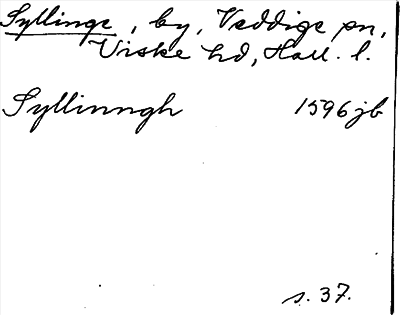 Syllinge, by, Veddige sn,
Viske hd, Hall. l.
Syllinngh 1596 jb
s. 37.